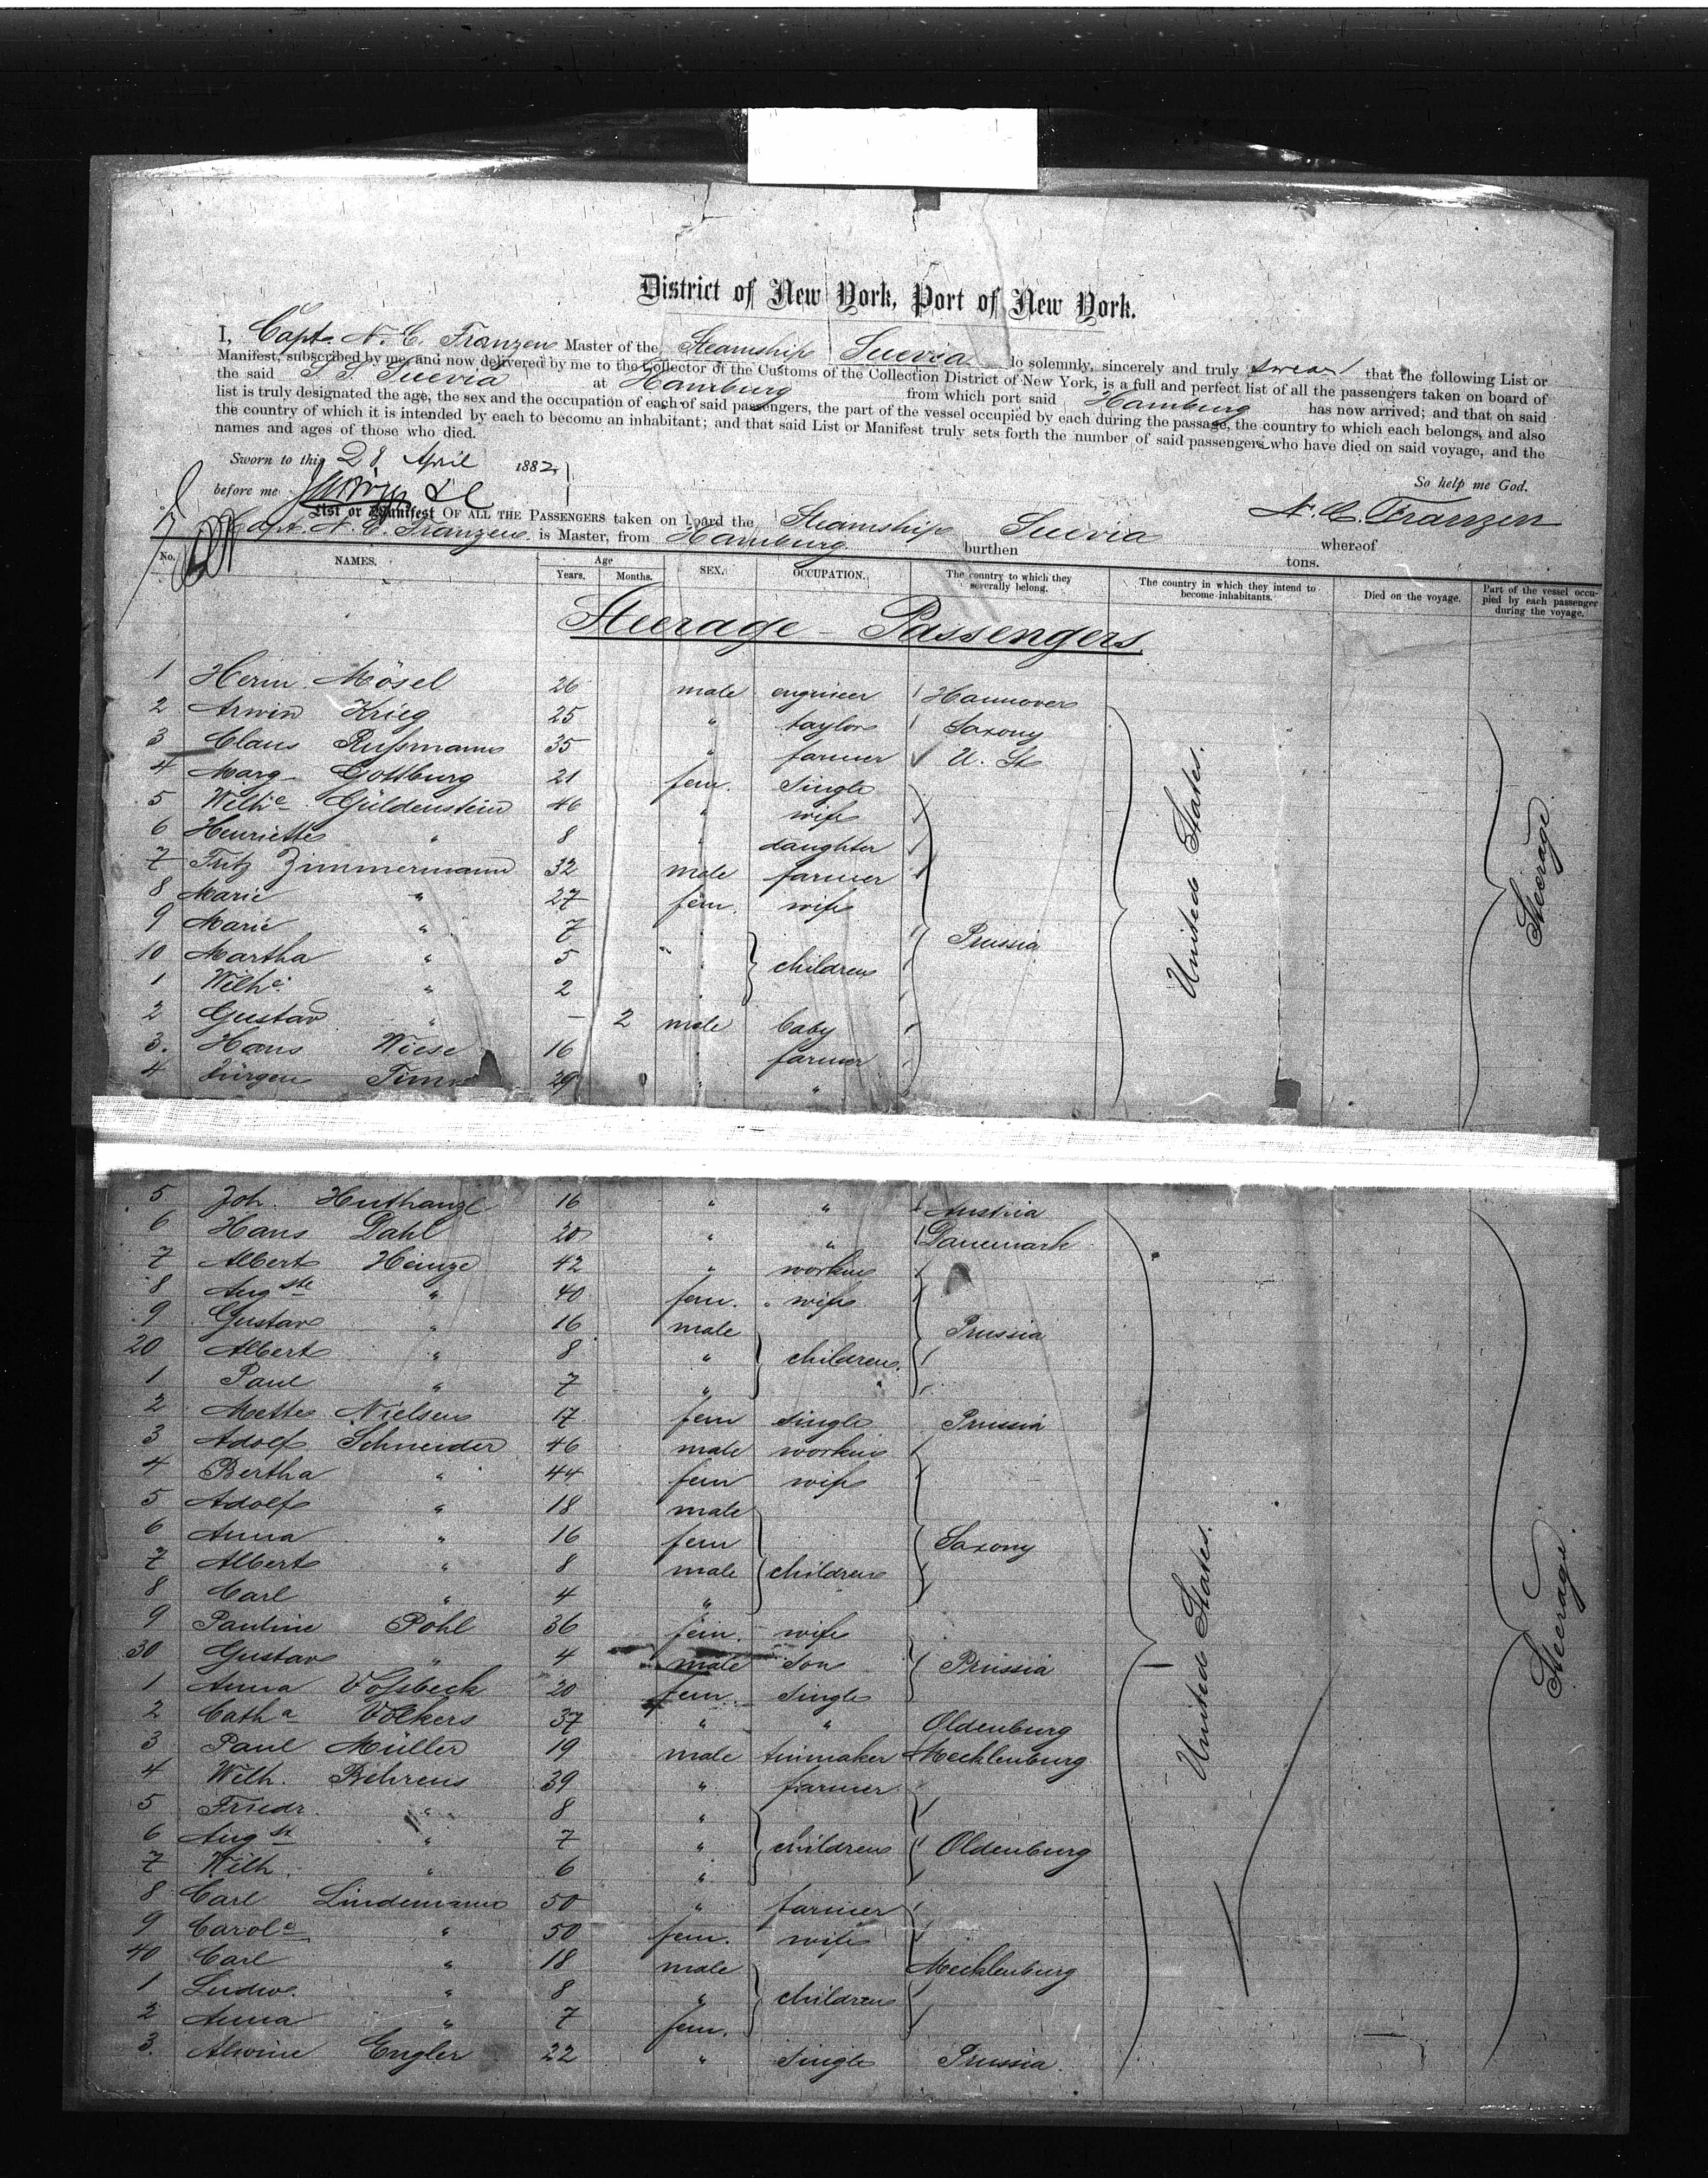 District of New York, Port of New York.
I, Capt. N. C. Franzen Master of the Steamship Suevia do solemnly, sincerely and truly swear that the following List or
Manifest, subscribed by me, and now delivered by me to the Collector of the Customs of the Collection District of New York, is a full and perfect list of all the passengers taken on board of
the said S S Suevia at Hamburg from which port said Hamburg has now arrived; and that on said
list is truly designated the age, the sex and the occupation of each of said passengers, the part of the vessel occupied by each during the passage, the country to which each belongs, and also
the country of which it is intended by each to become an inhabitant; and that said List or Manifest truly sets forth the number of said passengers who have died on said voyage, and the
names and ages of those who died.
Sworn to this 28 April 1882
So help me God.
before me
N. C. Franzen
List or Manifest OF ALL THE PASSENGERS taken on board the Steamship Suevia whereof
Capt. N. C. Franzen is Master, from Hamburg burthen tons.
No. NAMES. Age Years. Months. SEX. OCCUPATION. The country to which they severally belong. The country in which they intend to become inhabitants. Died on the voyage. Part of the vessel occupied by each passenger during the voyage.
Steerage - Passengers
1 Herm. Mösel 26 male engineer Hannover
2 Arwin Krieg 25 " taylor Saxony
3 Claus Rußmann 35 " farmer U. St
4 Marg. Gottburg 21 fem. Single
5 Wilhe Güldenstein 46 " wife
6 Henriette " 8 " daughter
7 Fritz Zimmermann 32 male farmer
8 Marie " 27 fem. wife
9 Marie " 7 " Prussia
10 Martha " 5 " children
1 Wilhe " 2 "
2 Gustav " - 2 male baby
3. Hans Wiese 16 " farmer
4 Jürgen Timm 29 " "
United States.
Steerage
5 Joh. Huthanzl 16 " " Austria
6 Hans Dahl 20 " " Danemark
7 Albert Heinze 42 " working
8 Augste " 40 fem. wife
9 Gustav " 16 male Prussia
20 Albert " 8 " children.
1 Paul " 7 "
2 Mette Nielsen 17 fem single Prussia
3 Adolf Schneider 46 male working
4 Bertha " 44 fem wife
5 Adolf " 18 male
6 Anna " 16 fem Saxony
7 Albert " 8 male children
8 Carl " 4 "
9 Pauline Pohl 36 fem. wife
30 Gustav " 4 male Son Prussia
1 Anna Voßbeck 20 fem. single
2 Catha Völkers 37 " " Oldenburg
3 Paul Müller 19 male tinmaker Mecklenburg
4 Wilh. Behrens 39 " farmer
5 Friedr. " 8 "
6 Augst " 7 " children Oldenburg
7 Wilh. " 6 "
8 Carl Lindemann 50 " farmer
9 Carole " 50 fem. wife
40 Carl " 18 male Mecklenburg
1 Ludw. " 8 " children
2 Anna " 7 fem.
3. Alwine Engler 22 " single Prussia.
United States.
Steerage